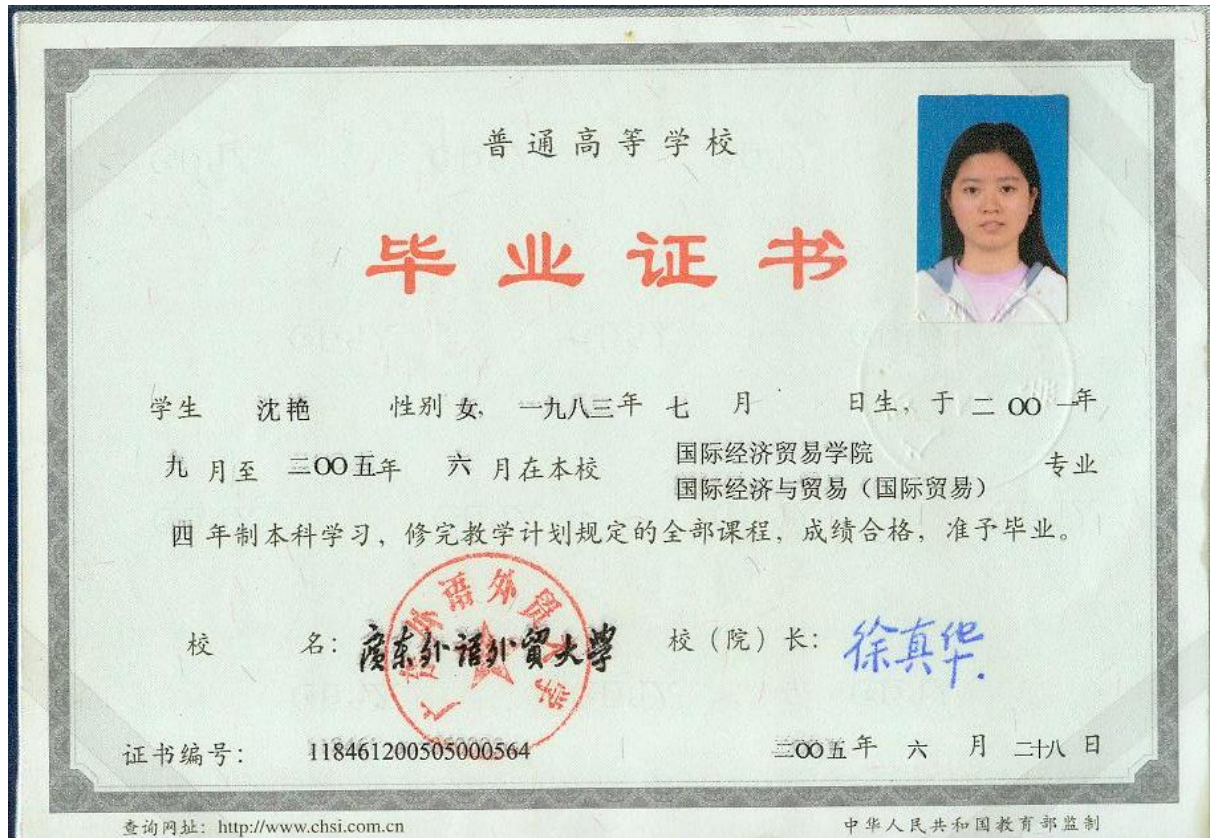 普通高等学校
毕业证书
学生 沈艳 性别 女, 一九八三年 七 月 日生, 于 二〇〇一年
九 月至 二〇〇五年 六 月在本校 国际经济贸易学院 专业
国际经济与贸易（国际贸易）
四 年制本科学习, 修完教学计划规定的全部课程, 成绩合格, 准予毕业。
校 名: 廣东外语外貿大學 校（院）长: 徐真华
广东外语外贸大学
证书编号: 118461200505000564 二〇〇五年 六 月 二十八 日
查询网址: http://www.chsi.com.cn 中华人民共和国教育部监制